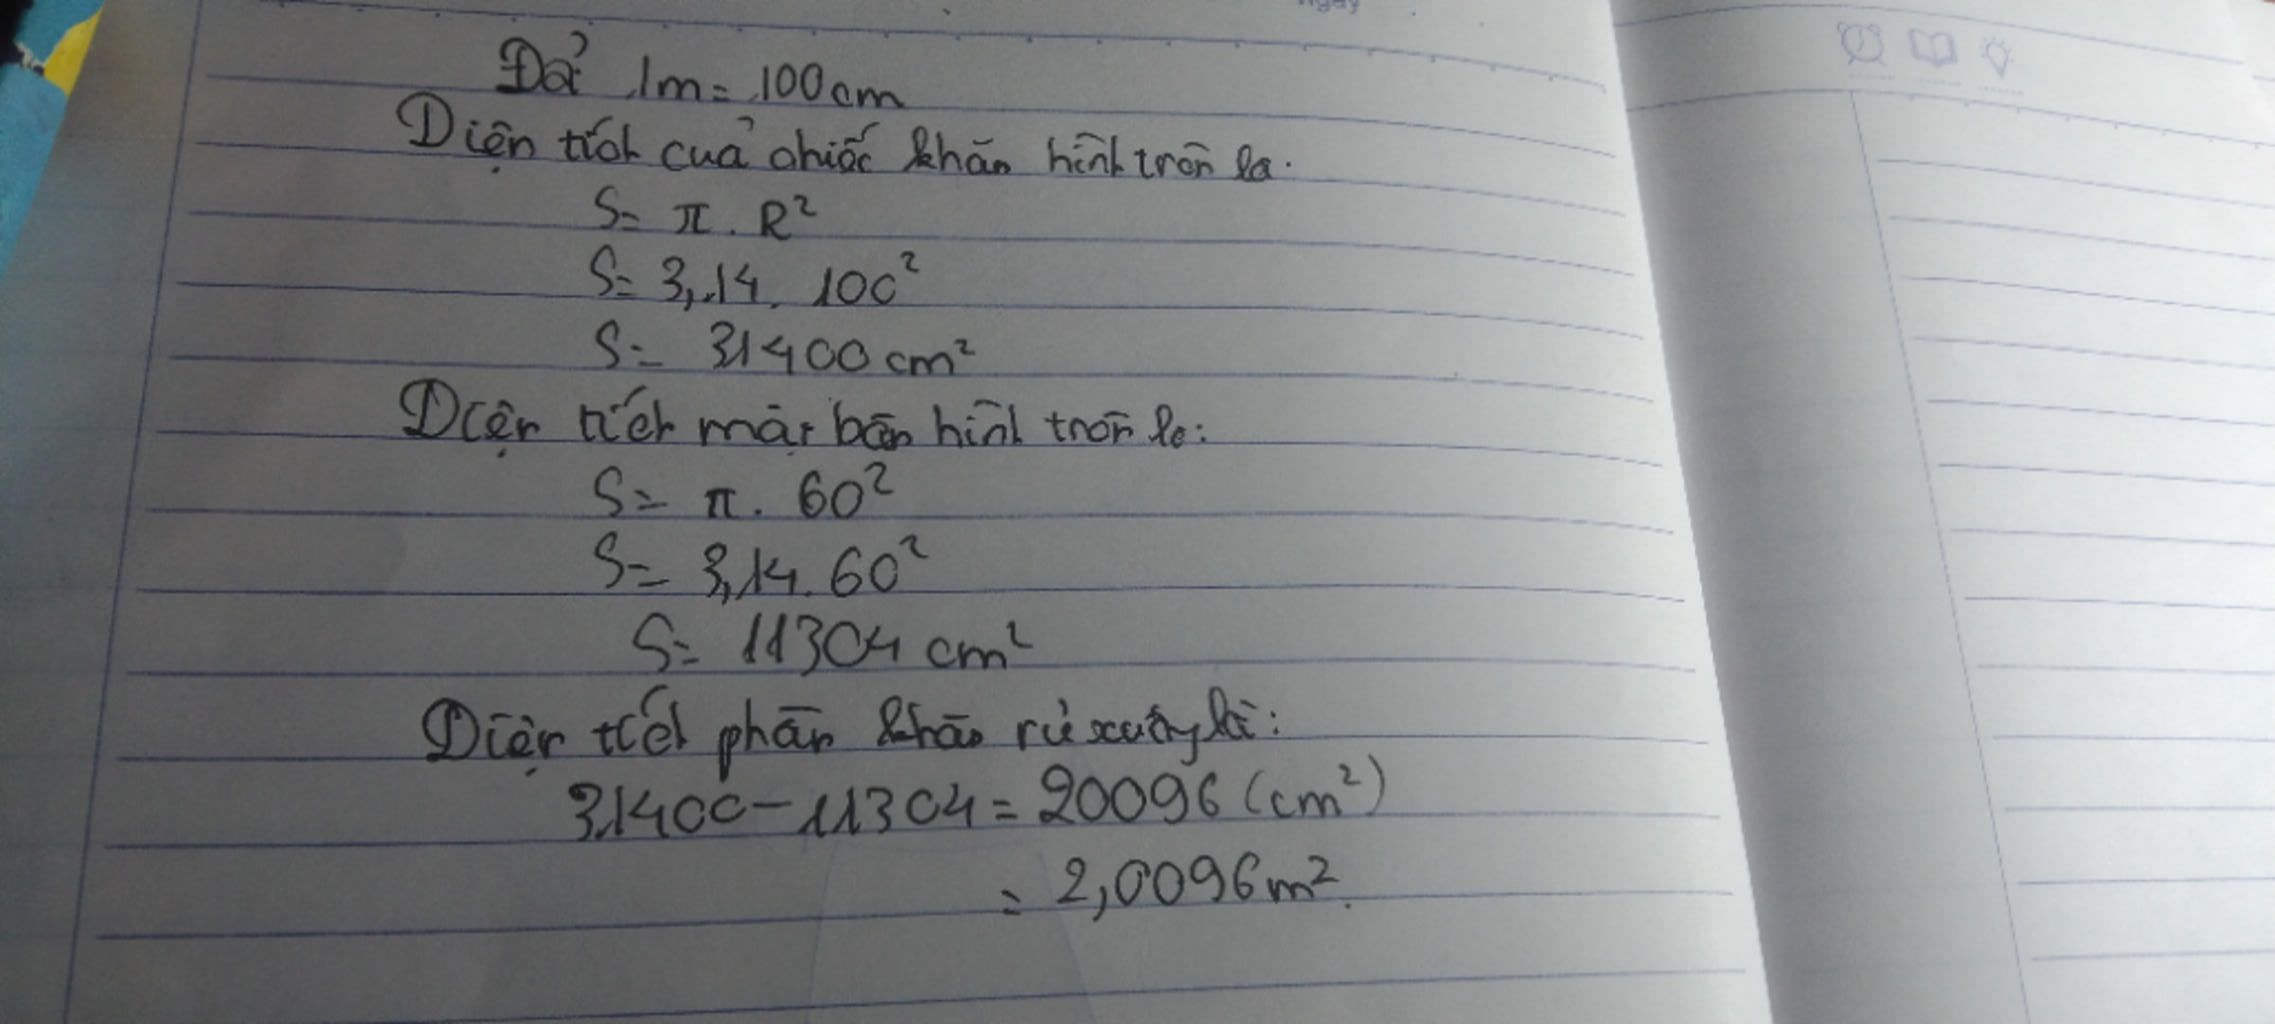 ngày
Đổi 1m = 100cm
Diện tích của chiếc khăn hình tròn là.
S = π . R²
S = 3,14. 100²
S = 31400 cm²
Diện tích mặt bàn hình tròn là:
S = π. 60²
S = 3,14. 60²
S = 11304 cm²
Diện tích phần khăn rủ xuống là:
31400 - 11304 = 20096 (cm²)
= 2,0096 m².